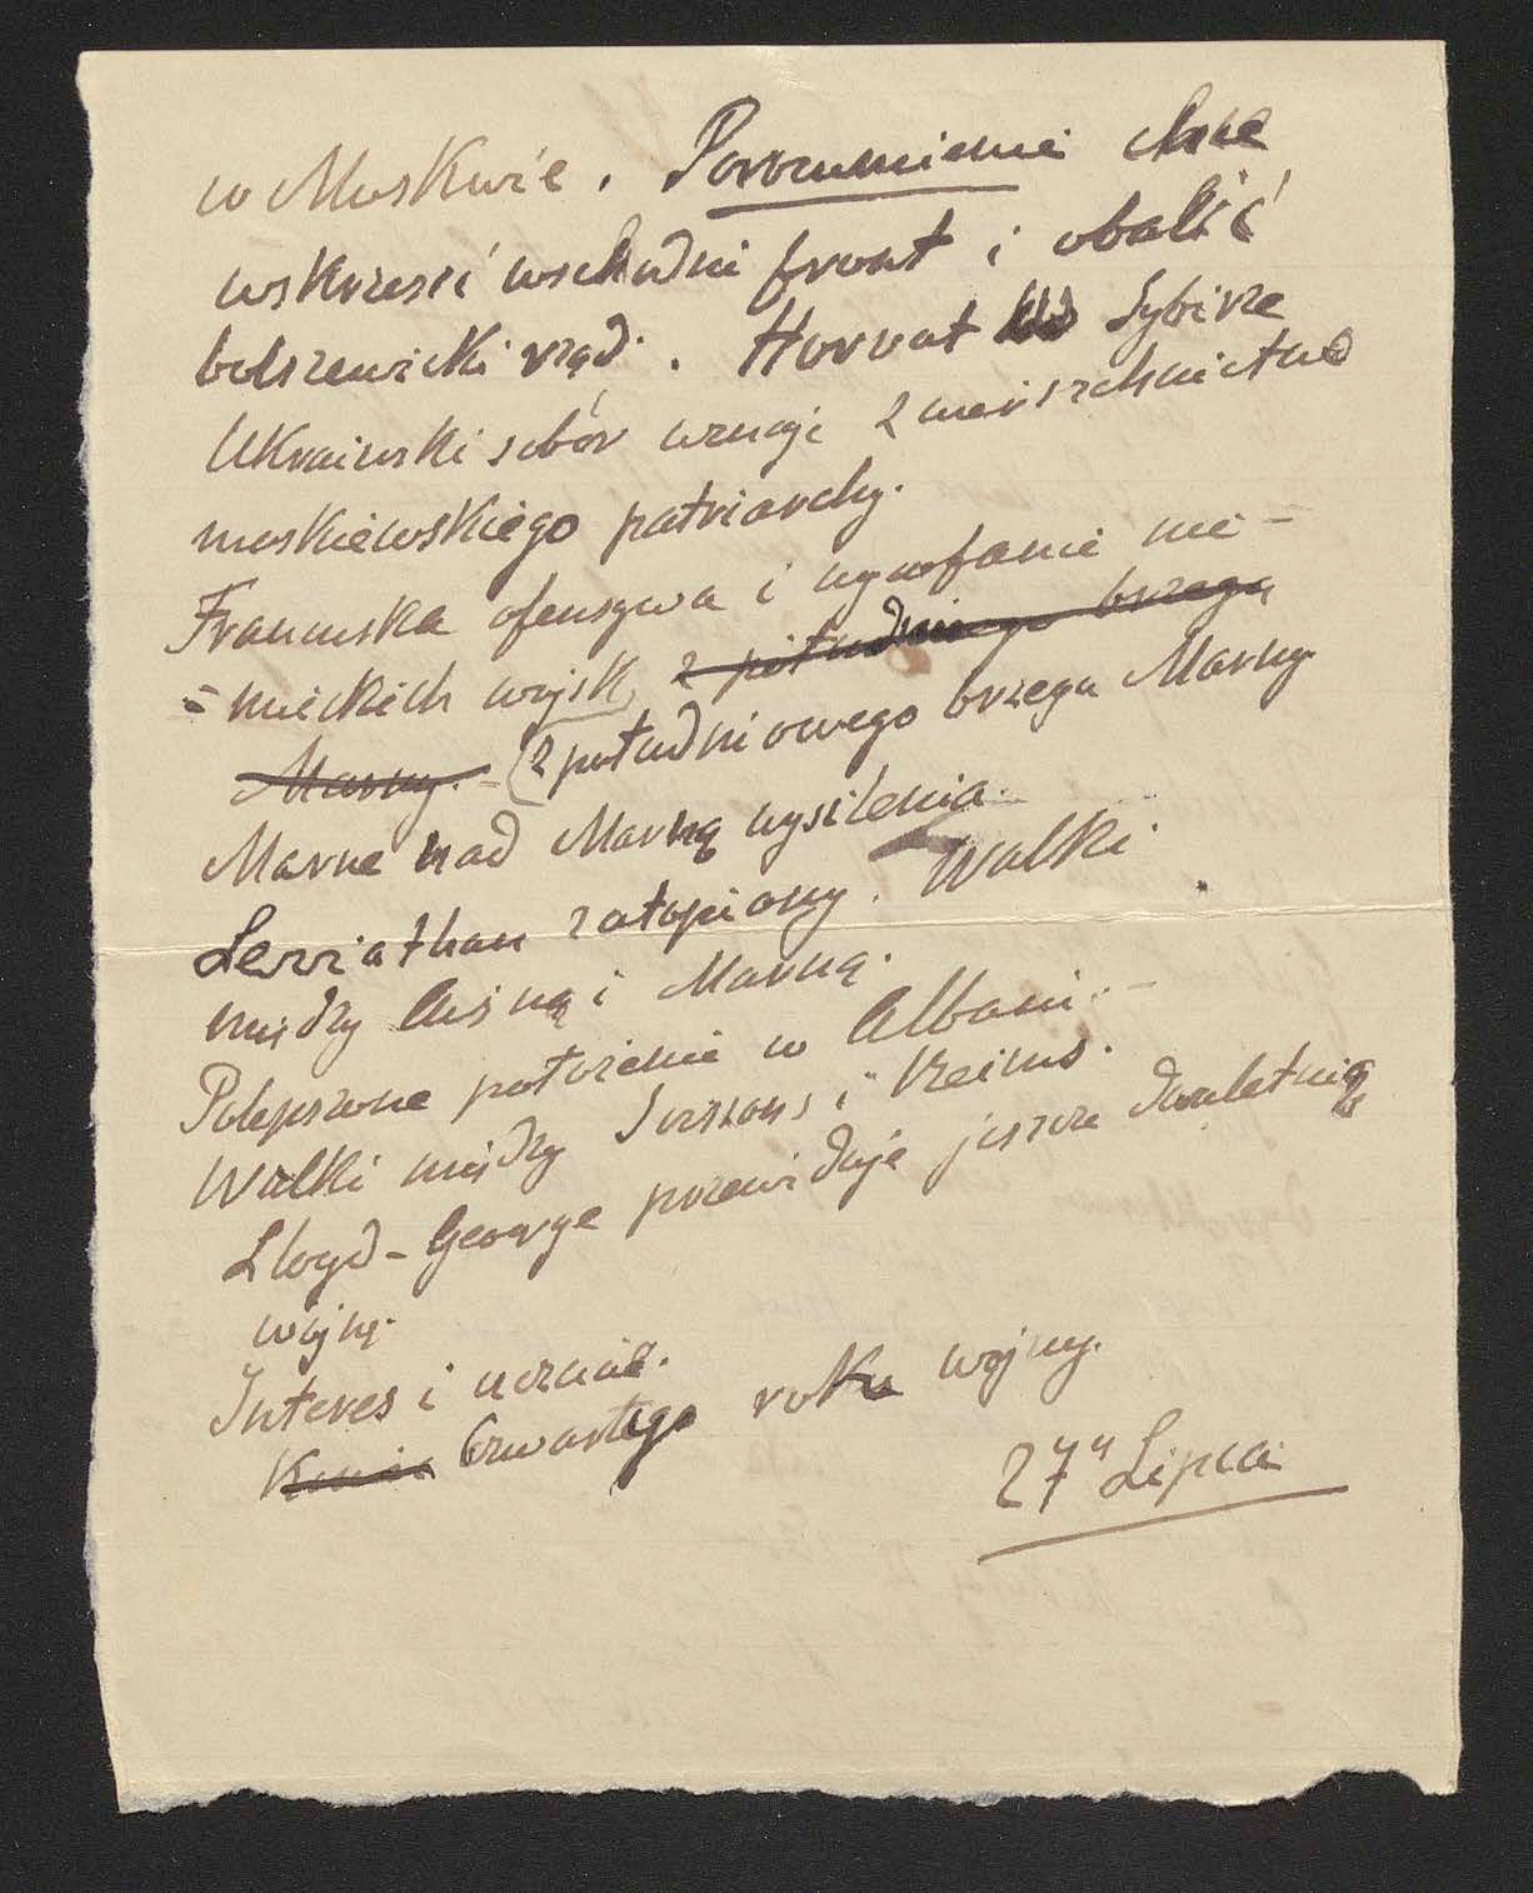 w Moskwie. Porozumienie chce
wskrzesić wschodni front i obalić
bolszewicki rząd. Horvat Sybirze
Ukraiński sobór uznaje zwierzchnictwo
moskiewskiego patriarchy.
Francuska ofensywa i wycofanie nie-
=mieckich wojsk z południowego brzegu
Marny. (z południowego brzegu Marny
Marne nad Marną wysilenia.
Lewiathan zatopiony. Walki
między Aisną i Marną.
Polepszone położenie w Albani.
Walki między Soissons i Reims.
Lloyd-George przewiduje jeszcze dwuletnią
wojnę.
Interes i uczucie.
Koniec Czwartego roku wojny.
27" Lipca